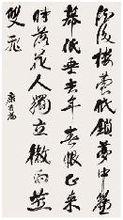 後樓臺鎖夢中簾
幕低垂去年春恨卻來
時落花人獨立微雨燕
雙飛
康有為